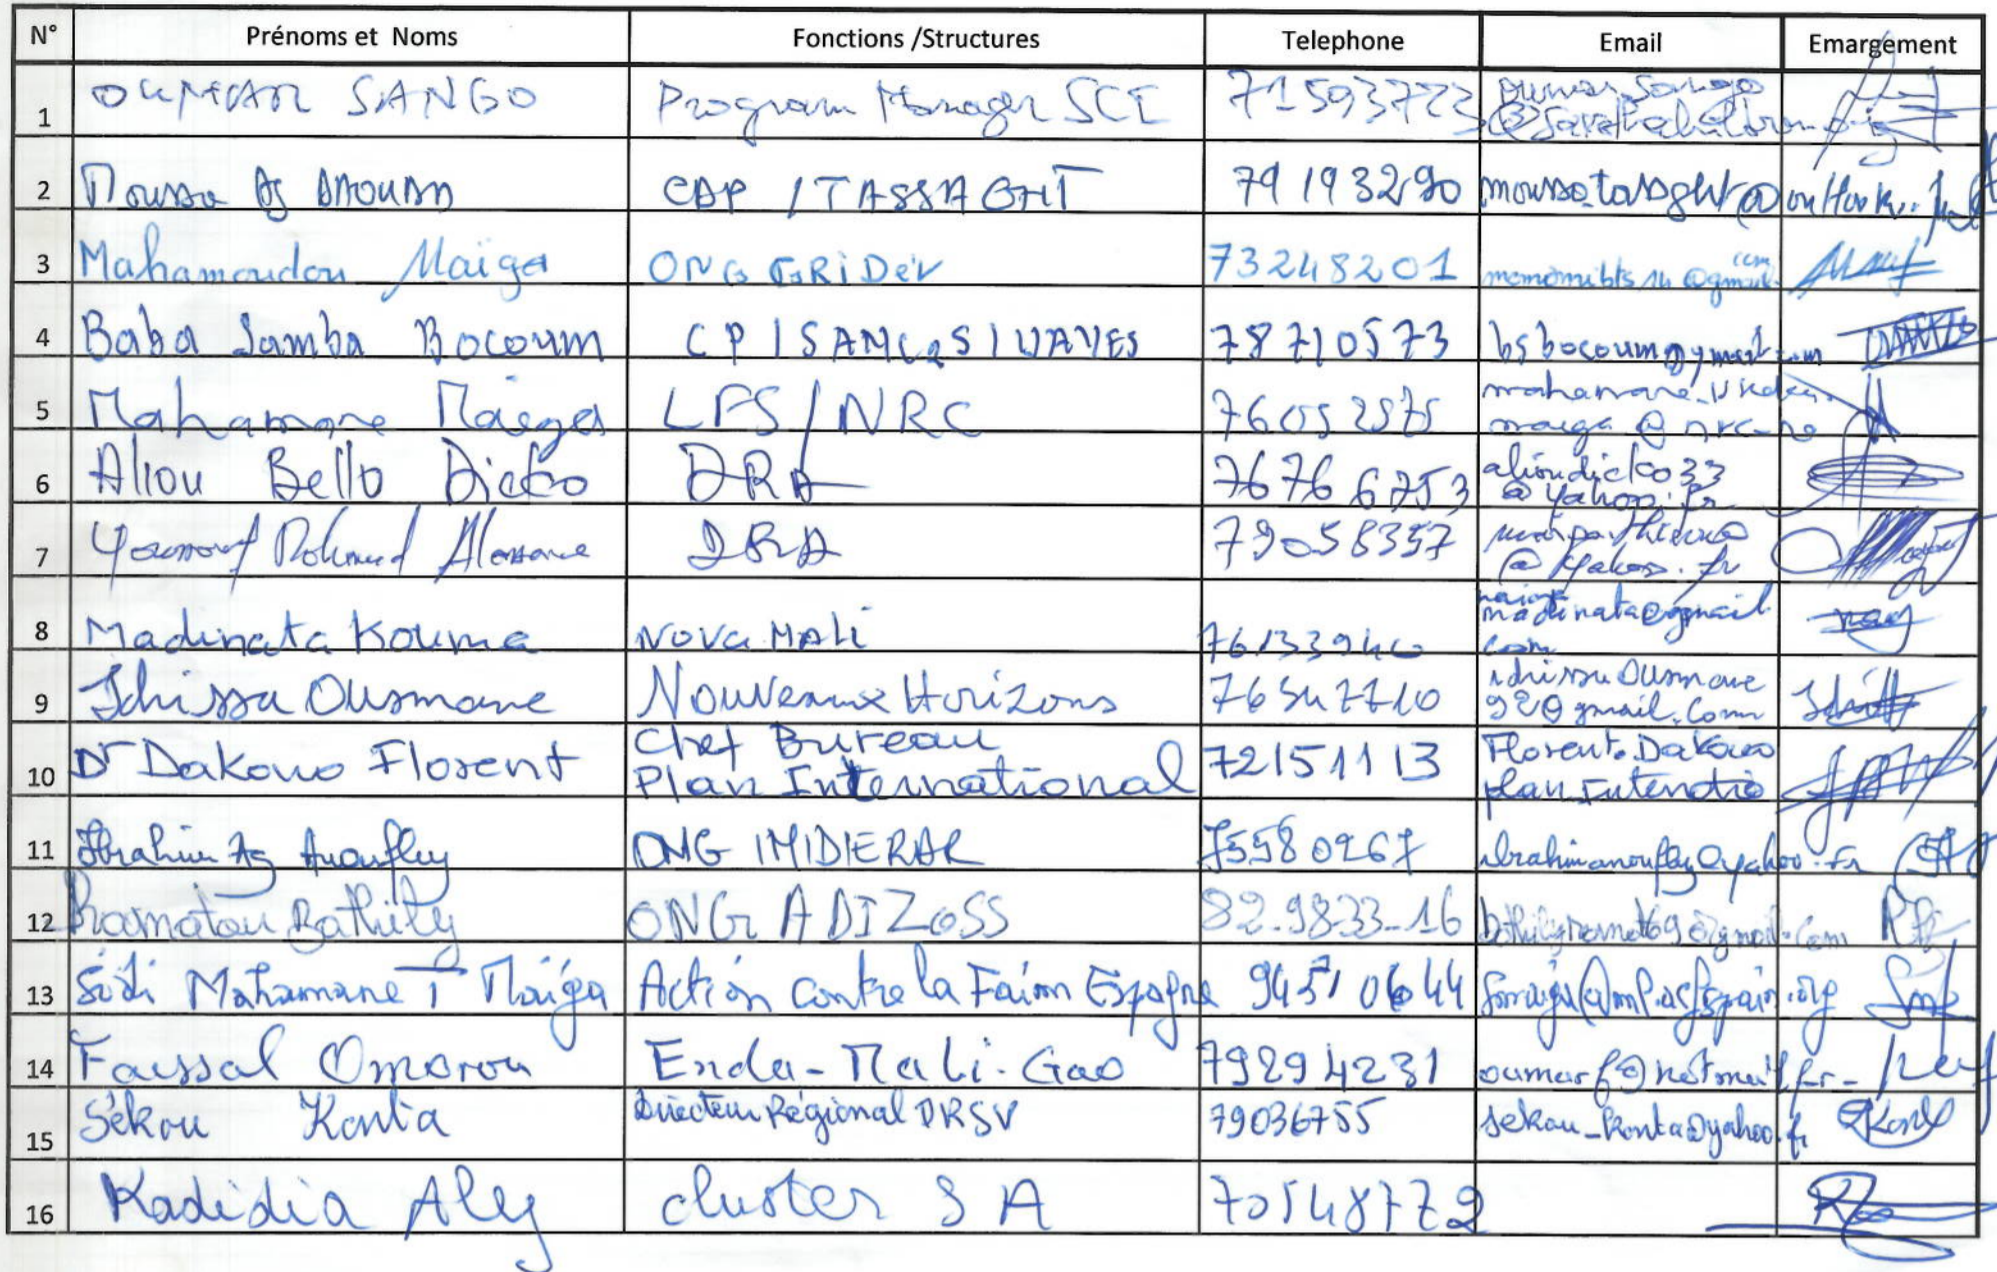 N° Prénoms et Noms Fonctions /Structures Telephone Email Emargement
1 OUMAR SANGO Program Manager SCI 71593723 oumar.sango
2 Moussa Ag CAP / TASSAGHT 79193290 outlook.
3 Mahamoudou Maïga ONG GRIDev 73248201
4 Baba Samba Bocoum CP / 78710573
5 Mahamane Maïga LFS/NRC 76052575
maiga @ nrc.no
6 Aliou Bello Dicko DRA 7676 6253 alioudicko33
@ yahoo.fr
7 Youssouf Mohamed Alassane DRA 79058357
@ yahoo.fr
8 Madinata Kouma NOVA MALI 76133940 madinata@gmail
com
9 Idrissa Ousmane Nouveaux Horizons 76547710 idrissa Ousmane
92@gmail.com
10 Dr Dakouo Florent Chef Bureau
Plan International 72151113 Florent.Dakouo
11 Ibrahim Ag Anoufley ONG IMIDIERAR 75580267 ibrahimanoufley@yahoo.fr
12 Ramatou Bathily ONG ADIZOSS 82-9833-16
13 Sidi Mahamane T Maïga Action contre la Faim Espagne 94510644
14 Faissal Omorou Enda-Mali-Gao 79294231 oumarf@hotmail.fr
15 Sékou Konta Directeur Régional DRSV 79036755 sekou_konta@yahoo.fr
16 Kadidia Aly cluster SA 70548772